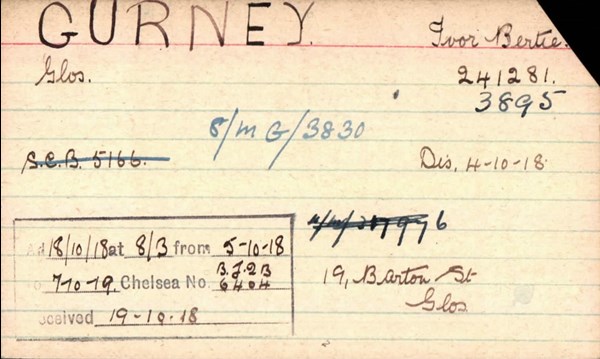 GURNEY. Ivor Bertie.
Glos. 241281.
3895
8/MG/3830
S.C.B. 5166. Dis. 4-10-18.
18/10/18 at 8/3 from 5-10-18
7-10-19. Chelsea No. B.J.23 6404
19-10-18
19, Barton St
Glos.